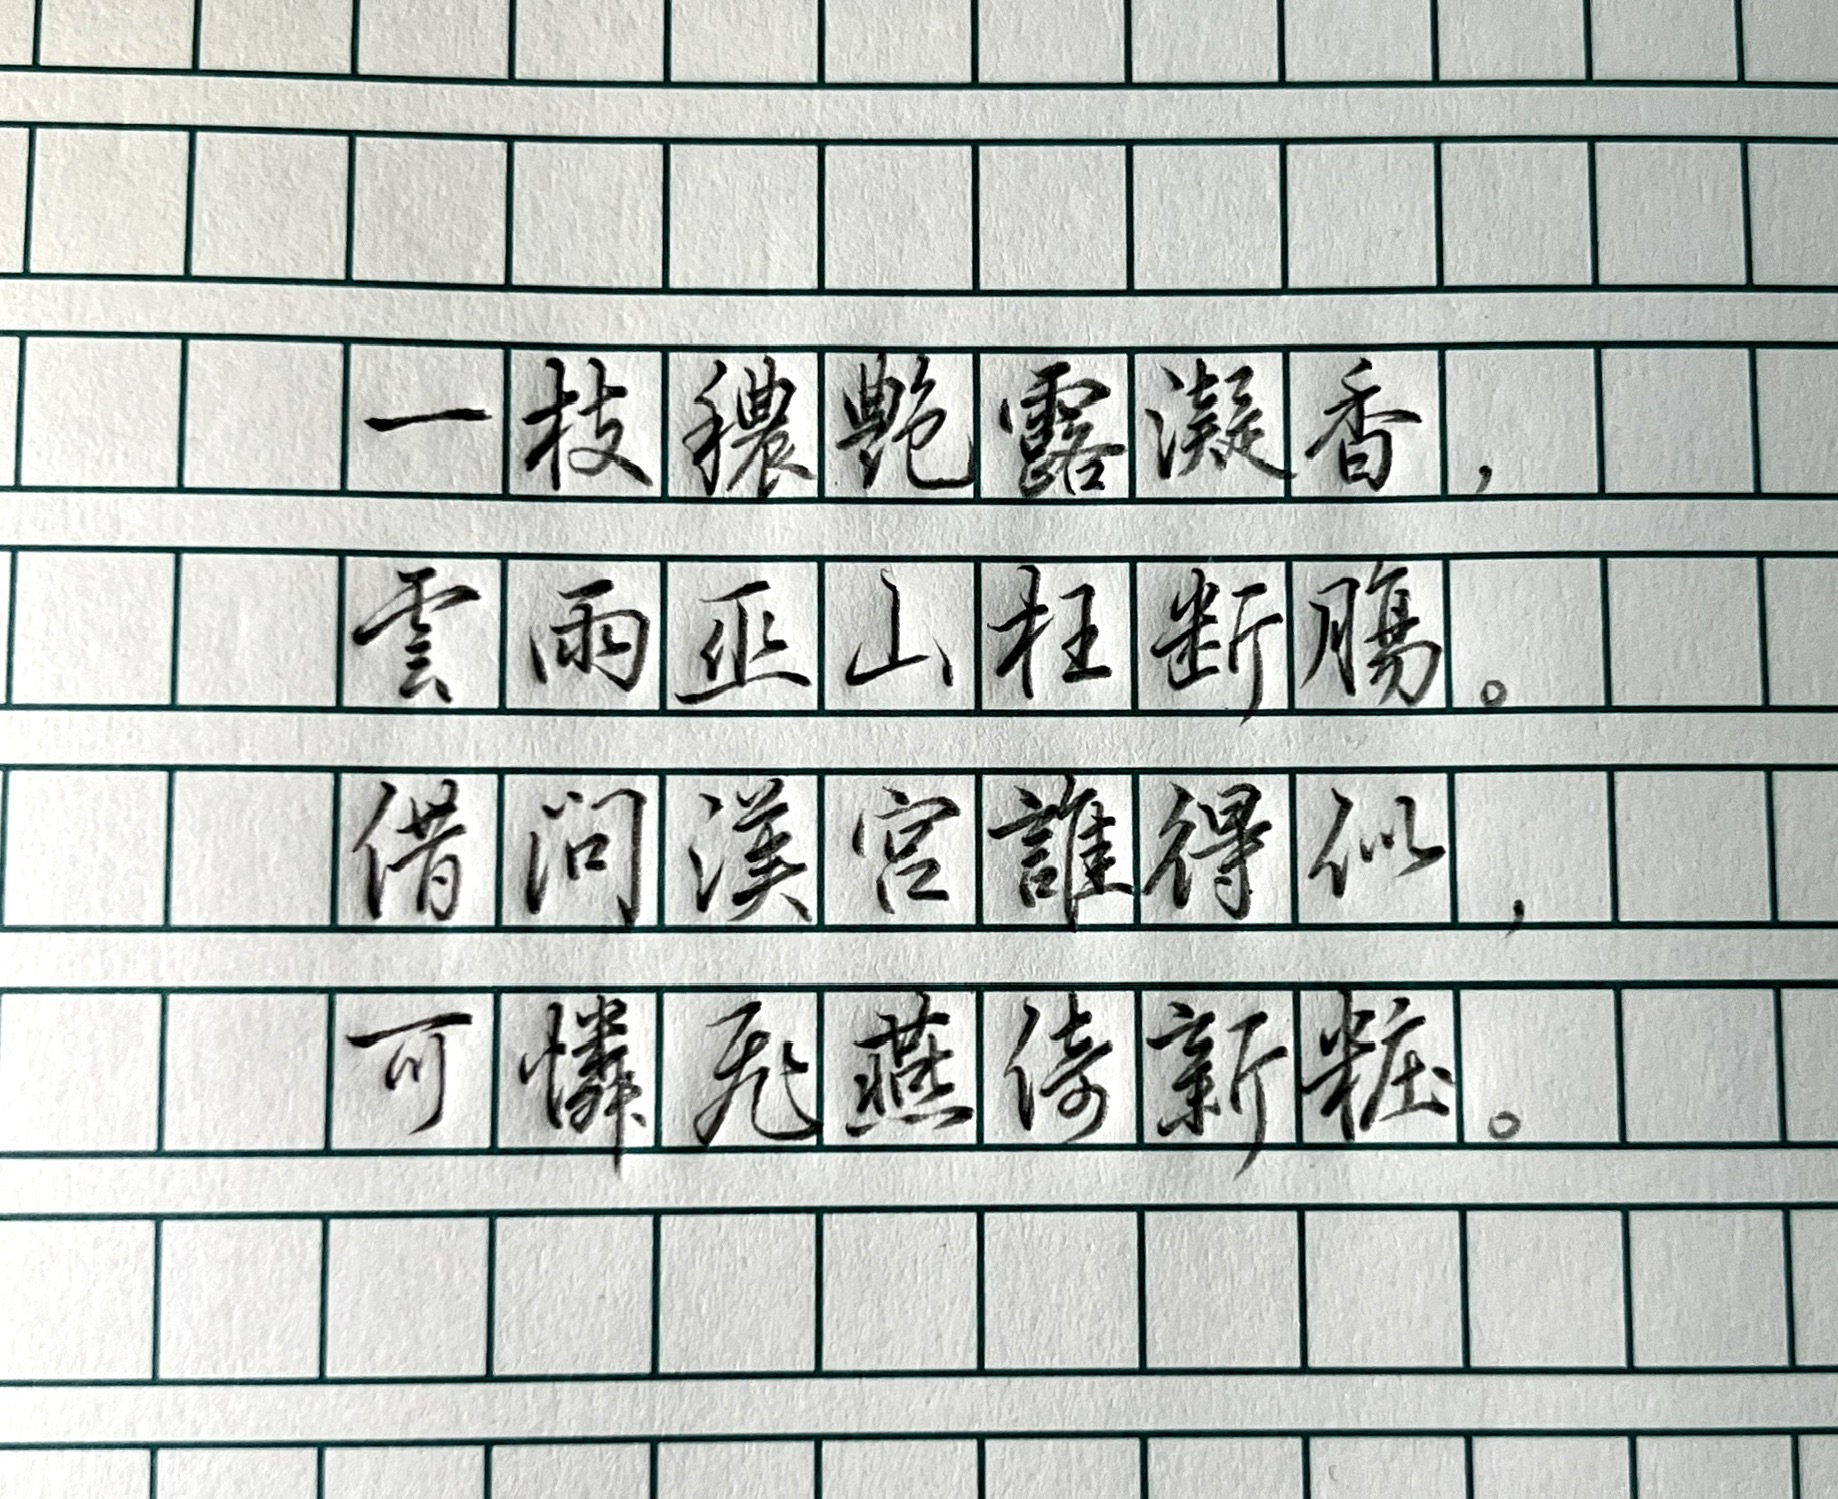 一枝穠艶露凝香，
雲雨巫山枉断腸。
借问漢宮誰得似，
可憐飛燕倚新粧。